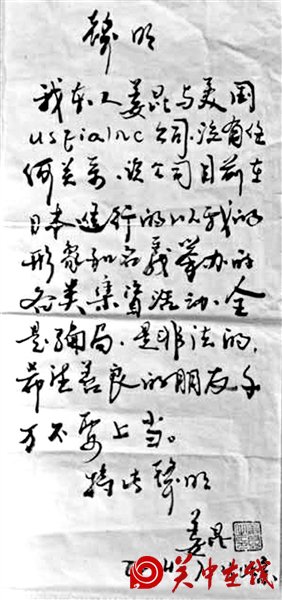 聲明
我本人姜昆与美国
usfia Inc公司.没有任
何关系.该公司目前在
日本进行的以我的
形象和名義举办的
各类集資活动.全
是骗局.是非法的,
希望善良的朋友千
万不要上当。
特此聲明
姜昆
关中在线